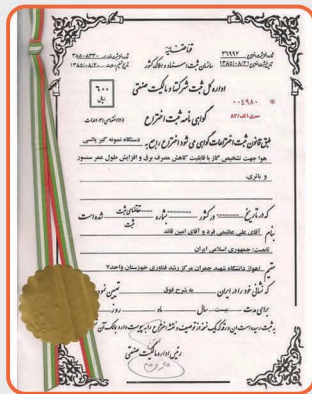 قوه قضائیه
سازمان ثبت اسناد و املاک کشور
اداره کل ثبت شرکتها و مالکیت صنعتی
۶۰۰
ریال
گواهی نامه ثبت اختراع
سری الف/۸۲
طبق قانون ثبت اختراعات گواهی می شود اختراع راجع به دستگاه نمونه گیر پالسی
هوا جهت تشخیص گاز با قابلیت کاهش مصرف برق و افزایش طول عمر سنسور
و باتری.
که در تاریخ در کشور بشماره تقاضای ثبت شده است
ثبت
بنام آقای علی عظیمی فرد و آقای امین قائد
تابعیت: جمهوری اسلامی ایران
مقیم اهواز دانشگاه شهید چمران مرکز رشد فناوری خوزستان واحد۷
که نشانی خود را در ایران به شرح فوق تعیین نموده
برای مدت بیست سال ماه روز
رئیس اداره مالکیت صنعتی